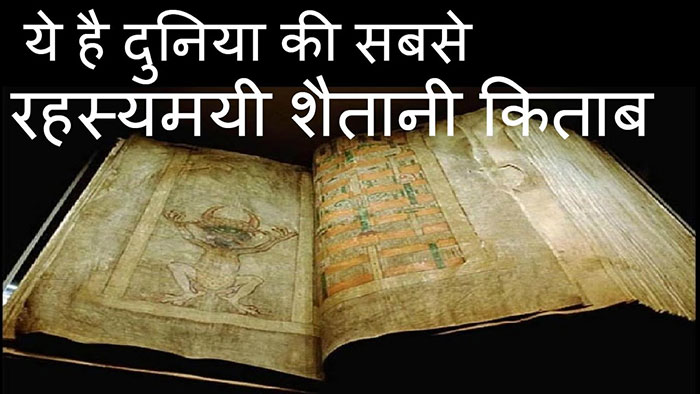 ये है दुनिया की सबसे
रहस्यमयी शैतानी किताब